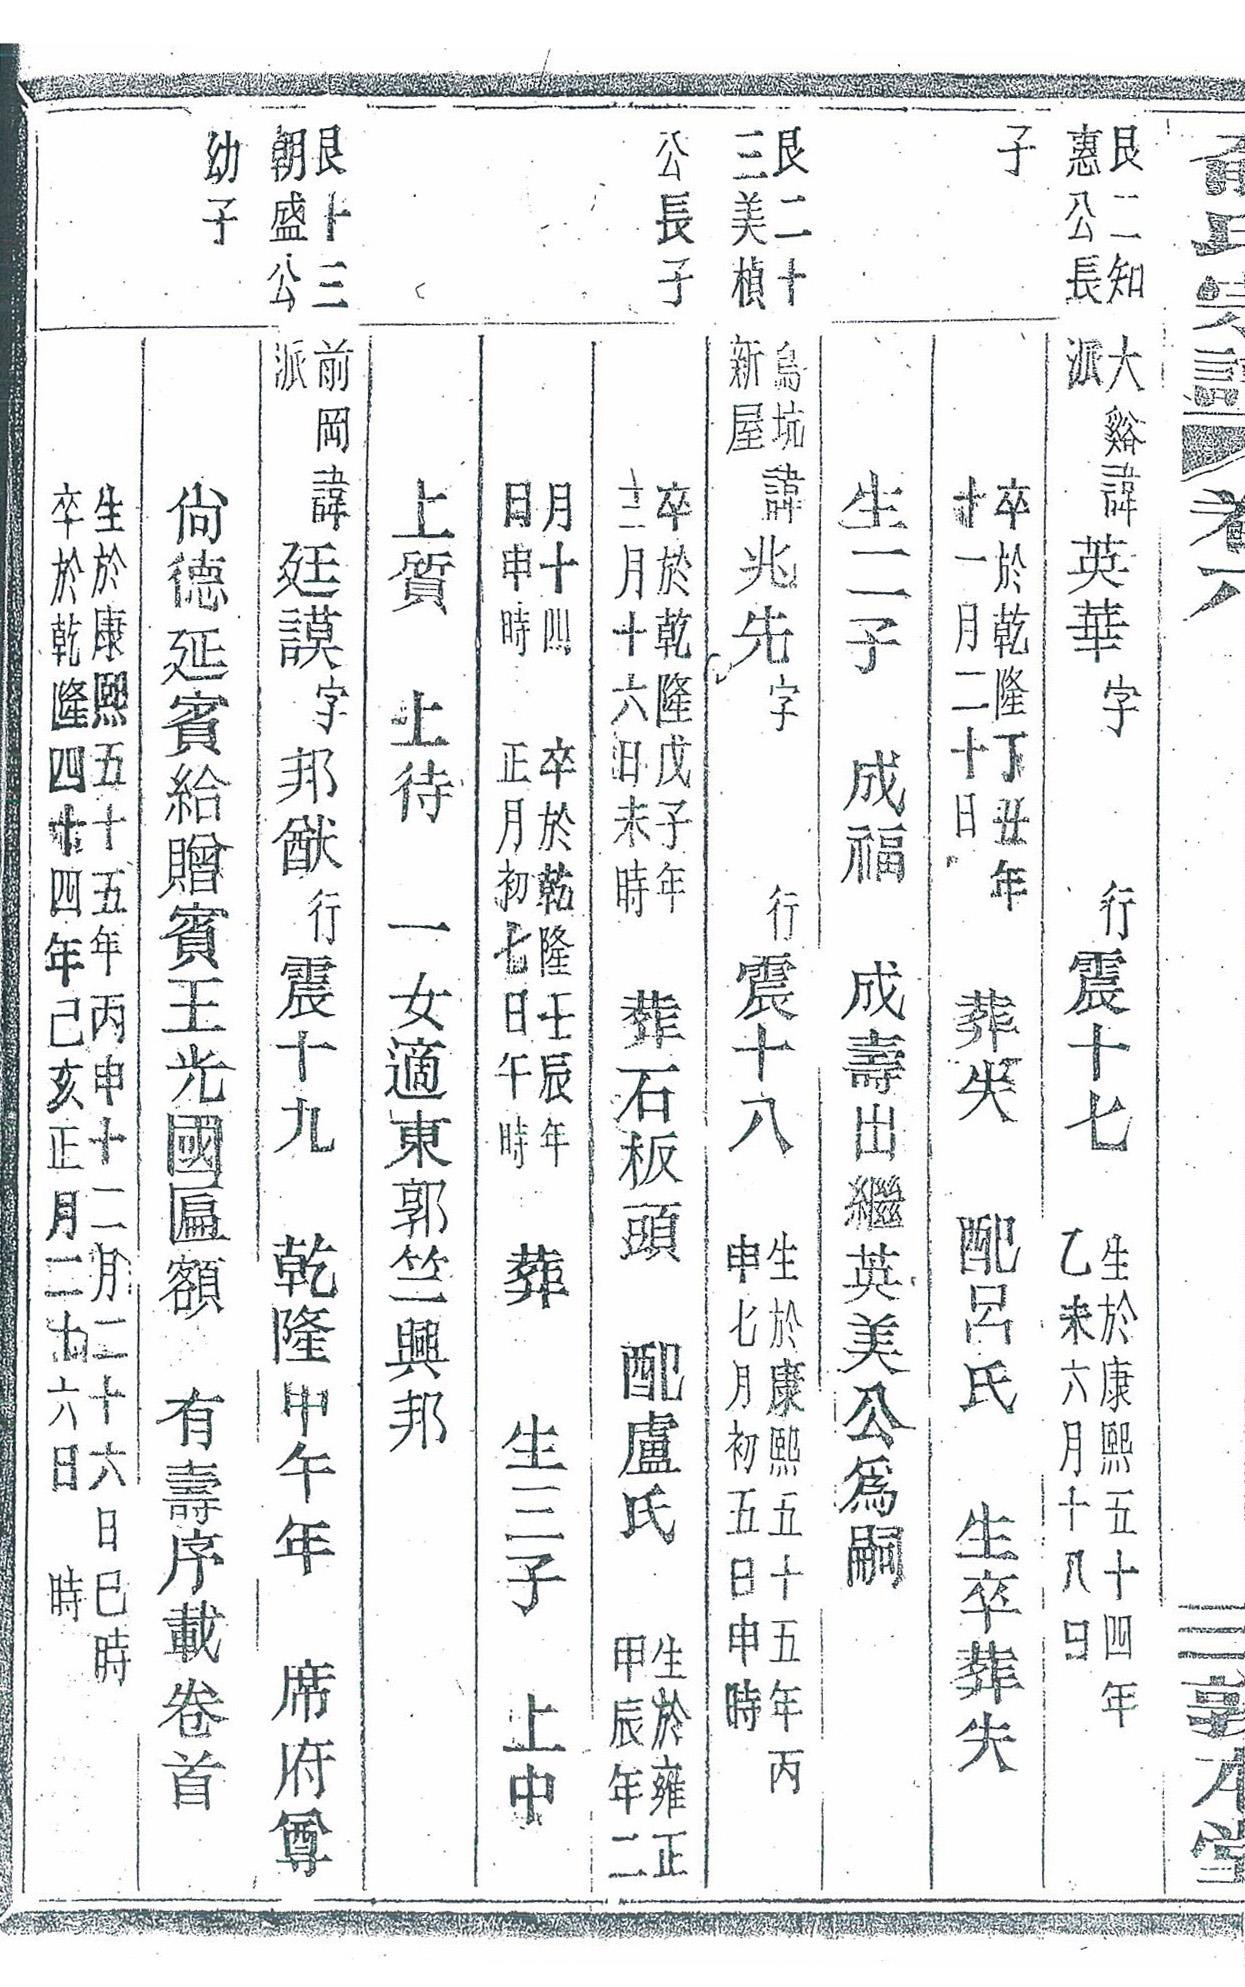 俞氏宗譜 卷六 三 敦本堂
艮二知
惠公長
子
大谿
派
諱英華 字 行震十七 生於康熙五十四年
乙未六月十八日
卒於乾隆丁丑年
十一月二十日
葬失 配呂氏 生卒葬失
生二子 成福 成壽出繼英美公為嗣
艮二十
三美楨
公長子
烏坑
新屋
諱兆先 字 行震十八 生於康熙五十五年丙
申七月初五日申時
卒於乾隆戊子年
十二月十六日未時
葬石板頭 配盧氏 生於雍正
甲辰年二
月十四
日申時
卒於乾隆壬辰年
正月初七日午時
葬 生三子 上中
上質 上待 一女適東郭竺興邦
艮十三
朝盛公
幼子
前岡
派
諱廷謨 字邦猷 行震十九 乾隆甲午年 席府尊
尚德延賓給贈賓王光國匾額 有壽序載卷首
生於康熙五十五年丙申十二月二十六日巳時
卒於乾隆四十四年己亥正月二十六日 時